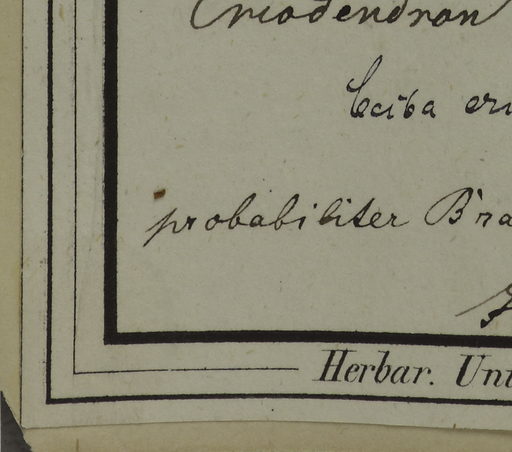 Eriodendron
Ceiba eri
probabiliter Bra
Herbar. Uni